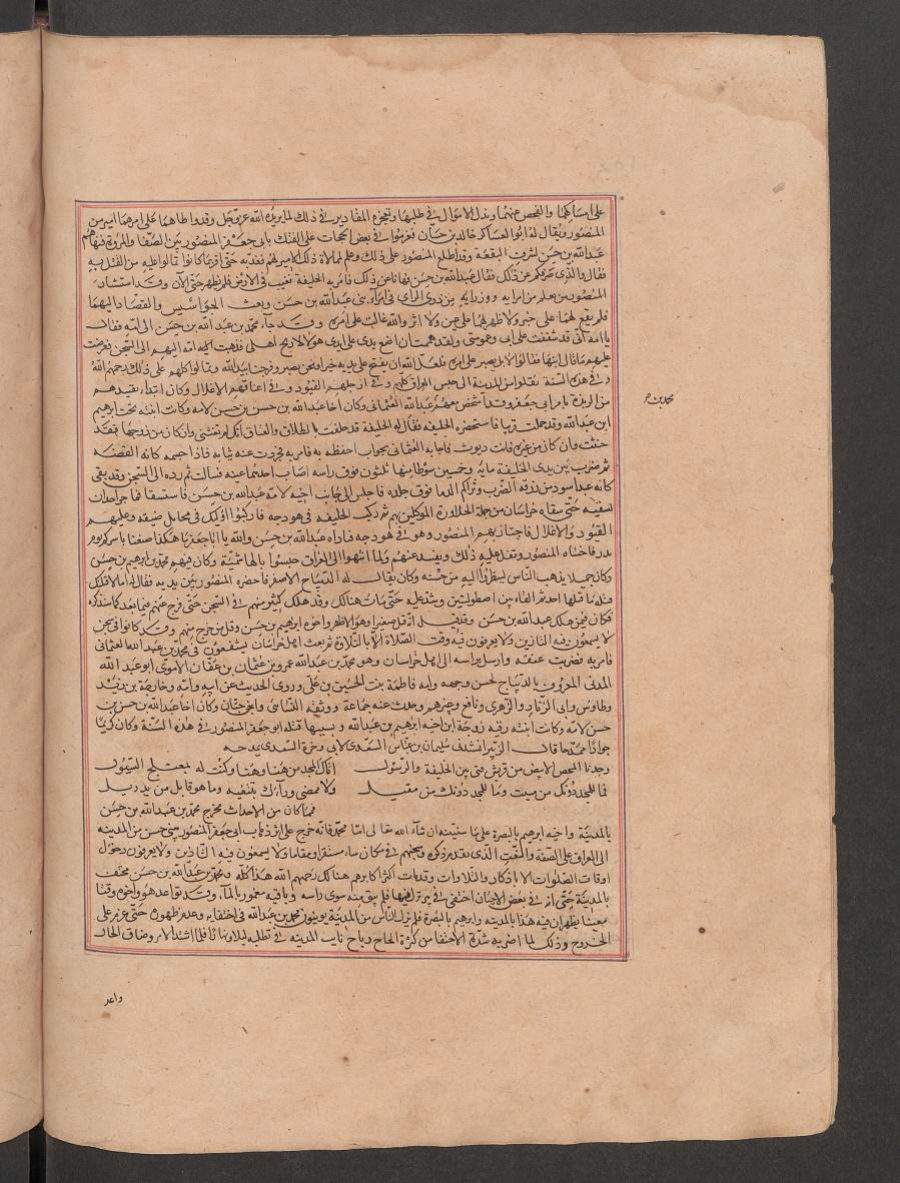 على امساكهما والفحص عنهما وبذل الاموال في طلبهما وتعجزه المقادير في ذلك لما يريده الله عز وجل وقد واطاهما على امرهما امير من
المنصور ويقال له ابو العساكر خالد بن حسان فعزموا في بعض الحجات على الفتك بابي جعفر المنصور بين الصفا والمروة فنهاهم
عبد الله بن حسن لشرف البقعة وقد اطلع المنصور على ذلك وعلم لما لاة ذلك الامير لهم فعذبه حتى اقر بما كانوا تمالوا عليه من الفتك به
فقال وما الذي صرفكم عن ذلك فقال عبد الله بن حسن نهانا عن ذلك فامر به الخليفة فغيب في الارض فلم يظهر حتى الآن وقد استشار
المنصور من يعلم من امرايه ووزرايه من ذوي الراي في امر ابني عبد الله بن حسن وبعث الجواسيس والقصاد اليهما
فلم يقع لهما على خبر ولا ظهر لهما على عين ولا اثر والله غالب على امره وقد جاء محمد بن عبد الله بن حسن الى امه فقال
يا امه اني قد شققت على ابي وعمومتي ولقد هممت ان اضع يدي على ايدي هؤلاء لاريح اهلي فذهبت اليه امه اليهم الى السجن فعرضت
عليهم ما قال ابنها فقالوا لا بل يصبر على امره فلعل الله ان يفتح على يديه خيرا ونحن نصبر وفرجنا بيد الله وتمالوا كلهم على ذلك رحمهم الله
وفي هذه السنة نقلوا من المدينة الى حبس العراق كلهم وفي ارجلهم القيود وفي اعناقهم الاغلال وكان ابتداء تقييدهم
من الربذة بامر ابي جعفر وقد اشخص معهم عبد الله العثماني وكان اخا عبد الله بن حسن بن حسن لامه وكانت ابنته تحت ابرهيم
ابن عبد الله وقد حملت قريبا فاستحضره الخليفة فقال له الخليفة قد حلفت بالطلاق والعتاق انك لم تغشني وان كان من زوجها فقد
حنثت وان كان من غيره فانت ديوث فاجابه العثماني بجواب احفظه به فامر به فجردت عنه ثيابه فاذا جسمه كانه الفضة
ثم ضرب بين يدي الخليفة مايه وخمسين سوطا منها ثلثون فوق راسه اصاب احدهما عينه فسالت ثم رده الى السجن وقد بقي
كانه عبد اسود من زرقة الضرب وتراكم الدما فوق جلده فاجلس الى جانب اخيه لامه عبد الله بن حسن فاستسقا فما جسر احد ان
يسقيه حتى سقاه خراساني من جملة الجلاوزة الموكلين بهم ثم ركب الخليفة في هودجه واركبوا اولئك في محامل ضيقه وعليهم
القيود والاغلال فاجتاز بهم المنصور وهو في الهودجه فناداه عبد الله بن حسن والله يا ابا جعفر ما هكذا صنعنا باسراكم يوم
بدر فاخساه المنصور وتفل عليه ذلك وبعد عنهم ولما انتهوا الى العراق حبسوا بالهاشمية وكان فيهم محمد بن ابرهيم بن حسن
وكان جميلا يذهب الناس لينظروا اليه من حسنه وكان يقال له الديباج الاصفر فاحضره المنصور بين يديه فقال له اما لاقتلنك
قتلة ما قتلها احد ثم القاه بين اسطوانتين وسد عليه حتى مات هنالك وقد هلك كثير منهم في السجن حتى فرج عنهم فيما بعد كما سنذكره
فكان فيمن هلك عبد الله بن حسن وقد قيل انه قتل صبرا وهو الاظهر واخوه ابرهيم بن حسن وقل من خرج منهم وقد كانوا في سجن
لا يسمعون فيه التاذين ولا يعرفون فيه وقت الصلاة الا بالتلاوة ثم بعث اهل خراسان يشفعون في محمد بن عبد الله العثماني
فامر به فضربت عنقه وارسل براسه الى اهل خراسان وهو محمد بن عبد الله بن عمرو بن عثمان بن عفان الاموي ابو عبد الله
المدني المعروف بالديباج لحسن وجهه وامه فاطمة بنت الحسين بن علي وروى الحديث عن ابيه وامه وخارجة بن زيد
وطاوس وابي الزناد والزهري ونافع وغيرهم وحدث عنه جماعة ووثقه النسائي وابن حبان وكان اخا عبد الله بن حسن بن
حسن لامه وكانت ابنته رقيه زوجة ابن اخيه ابرهيم بن عبد الله وبسببها قتله ابو جعفر المنصور في هذه السنة وكان كريما
جوادا ممدحا قال الزبير انشدني سليمان بن عباس السعدي لابي وجزة السعدي يمدحه
وجدنا المحض الابيض من قريش فتى بين الخليفة والرسول اتاك المجد من هنا وهنا وكنت له بمعتلج السيول
فما للمجد دونك من مبيت وما للمجد دونك من مقيل ولا يمضي وراءك يبتغيه وما هو قابل من بديل
فمما كان من الاحداث مخرج محمد بن عبد الله بن حسن
بالمدينة واخيه ابرهيم بالبصرة على ما سنبينه ان شاء الله تعالى اما محمد فانه خرج على اثر ذهاب ابي جعفر المنصور ببني حسن من المدينه
الى العراق على الصفة والنعت الذي تقدم ذكره وسجنهم في مكان ساء مستقرا ومقاما ولا يسمعون فيه التاذين ولا يعرفون دخول
اوقات الصلوات الا بالاذكار والتلاوات وقد مات اكثر اكابرهم هنالك رحمهم الله هذا كله ومحمد بن عبد الله بن حسن مختف
بالمدينة حتى انه في بعض الاحيان اختفى في بير نزل فيها فلم يبق منه سوى راسه وباقيه مغمور بالماء وقد تواعد هو واخوه وقتا
معينا يظهران فيه هذا بالمدينه وابرهيم بالبصرة فلم يزل الناس من المدينة يؤنبون محمد بن عبد الله في اختفايه وعدم ظهوره حتى عزم على
الخروج وذلك لما اضر به شدة الاختفا من كثرة الحاح رباح نايب المدينه في تطلبه ليلا ونهارا فلما اشتد الامر وضاق الحال
محمد بن
واعد